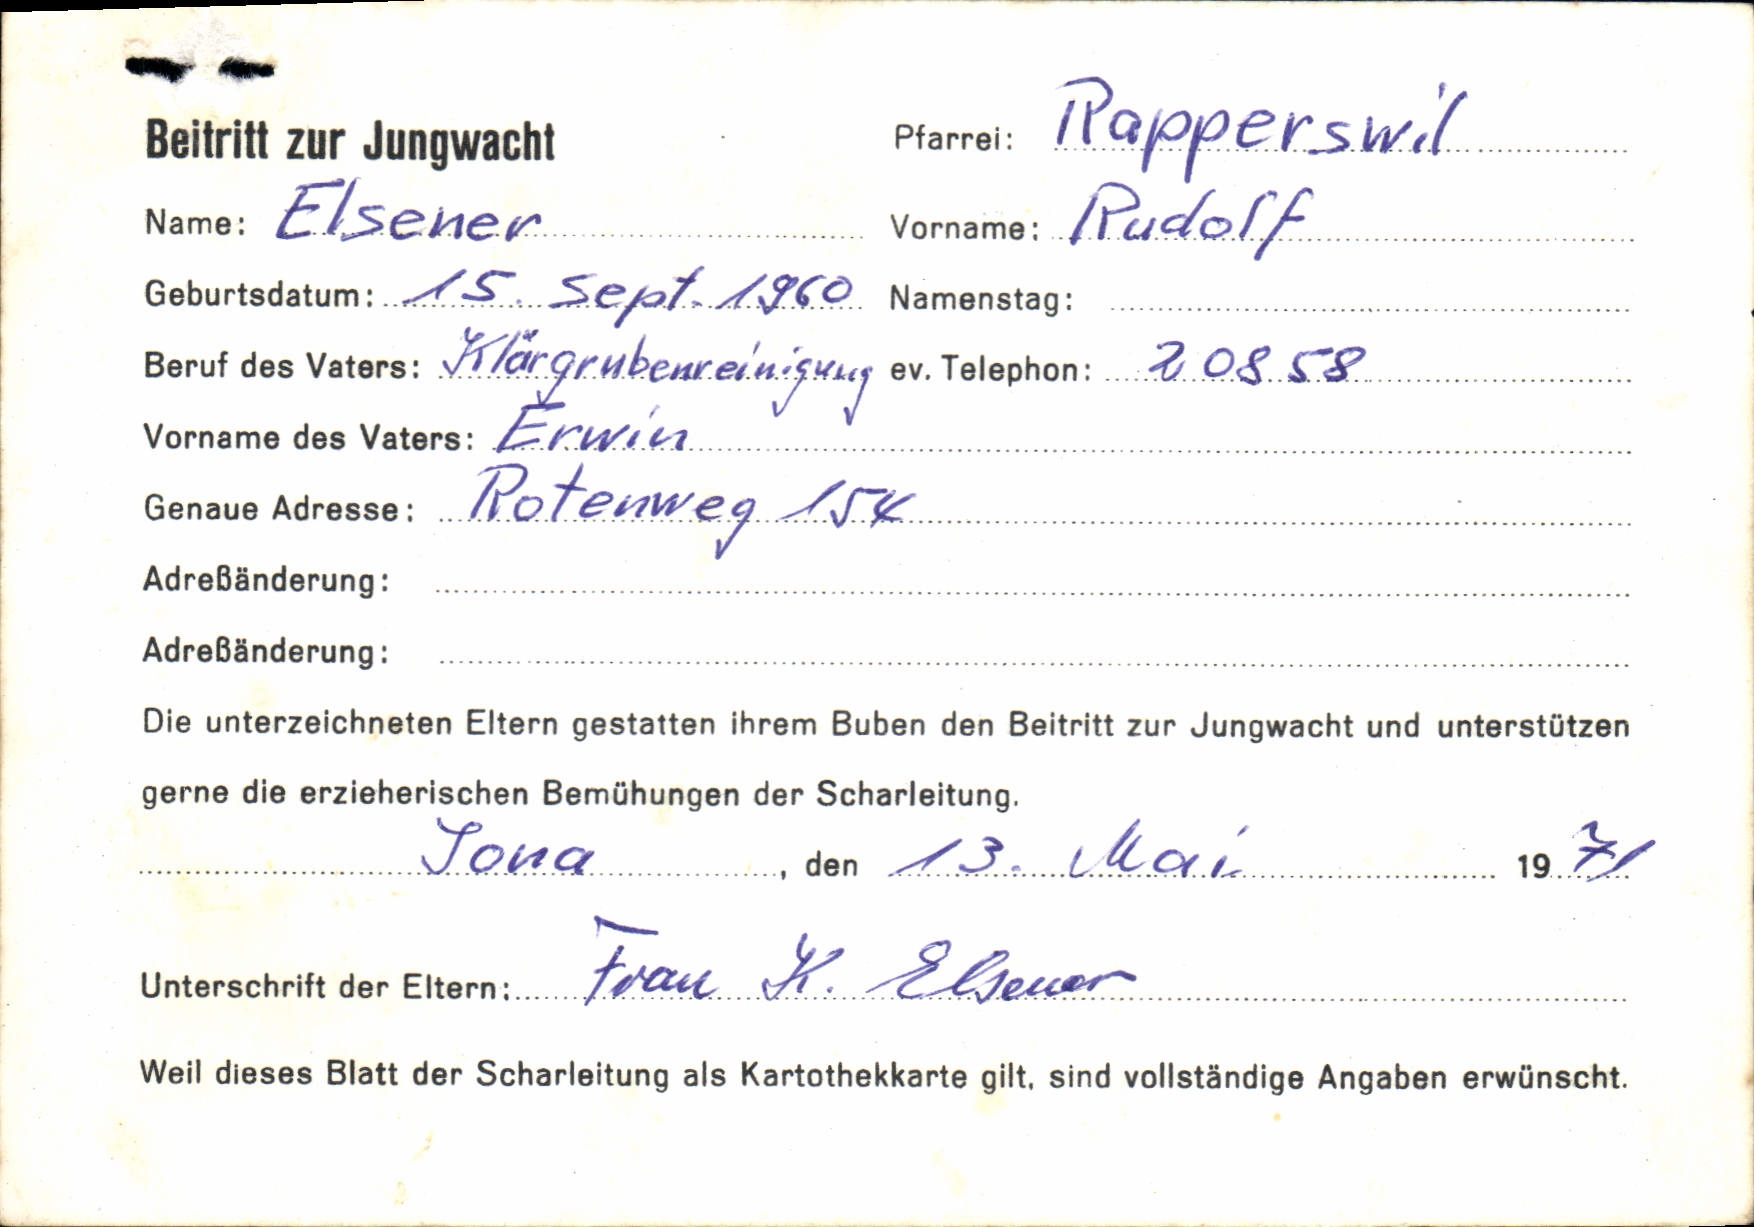 Beitritt zur Jungwacht Pfarrei: Rapperswil
Name: Elsener Vorname: Rudolf
Geburtsdatum: 15. Sept. 1960 Namenstag:
Beruf des Vaters: Klärgrubenreinigung ev. Telephon: 2 08 58
Vorname des Vaters: Erwin
Genaue Adresse: Rotenweg 154
Adreßänderung:
Adreßänderung:
Die unterzeichneten Eltern gestatten ihrem Buben den Beitritt zur Jungwacht und unterstützen
gerne die erzieherischen Bemühungen der Scharleitung.
Jona, den 13. Mai 1971
Unterschrift der Eltern: Frau K. Elsener
Weil dieses Blatt der Scharleitung als Kartothekkarte gilt, sind vollständige Angaben erwünscht.